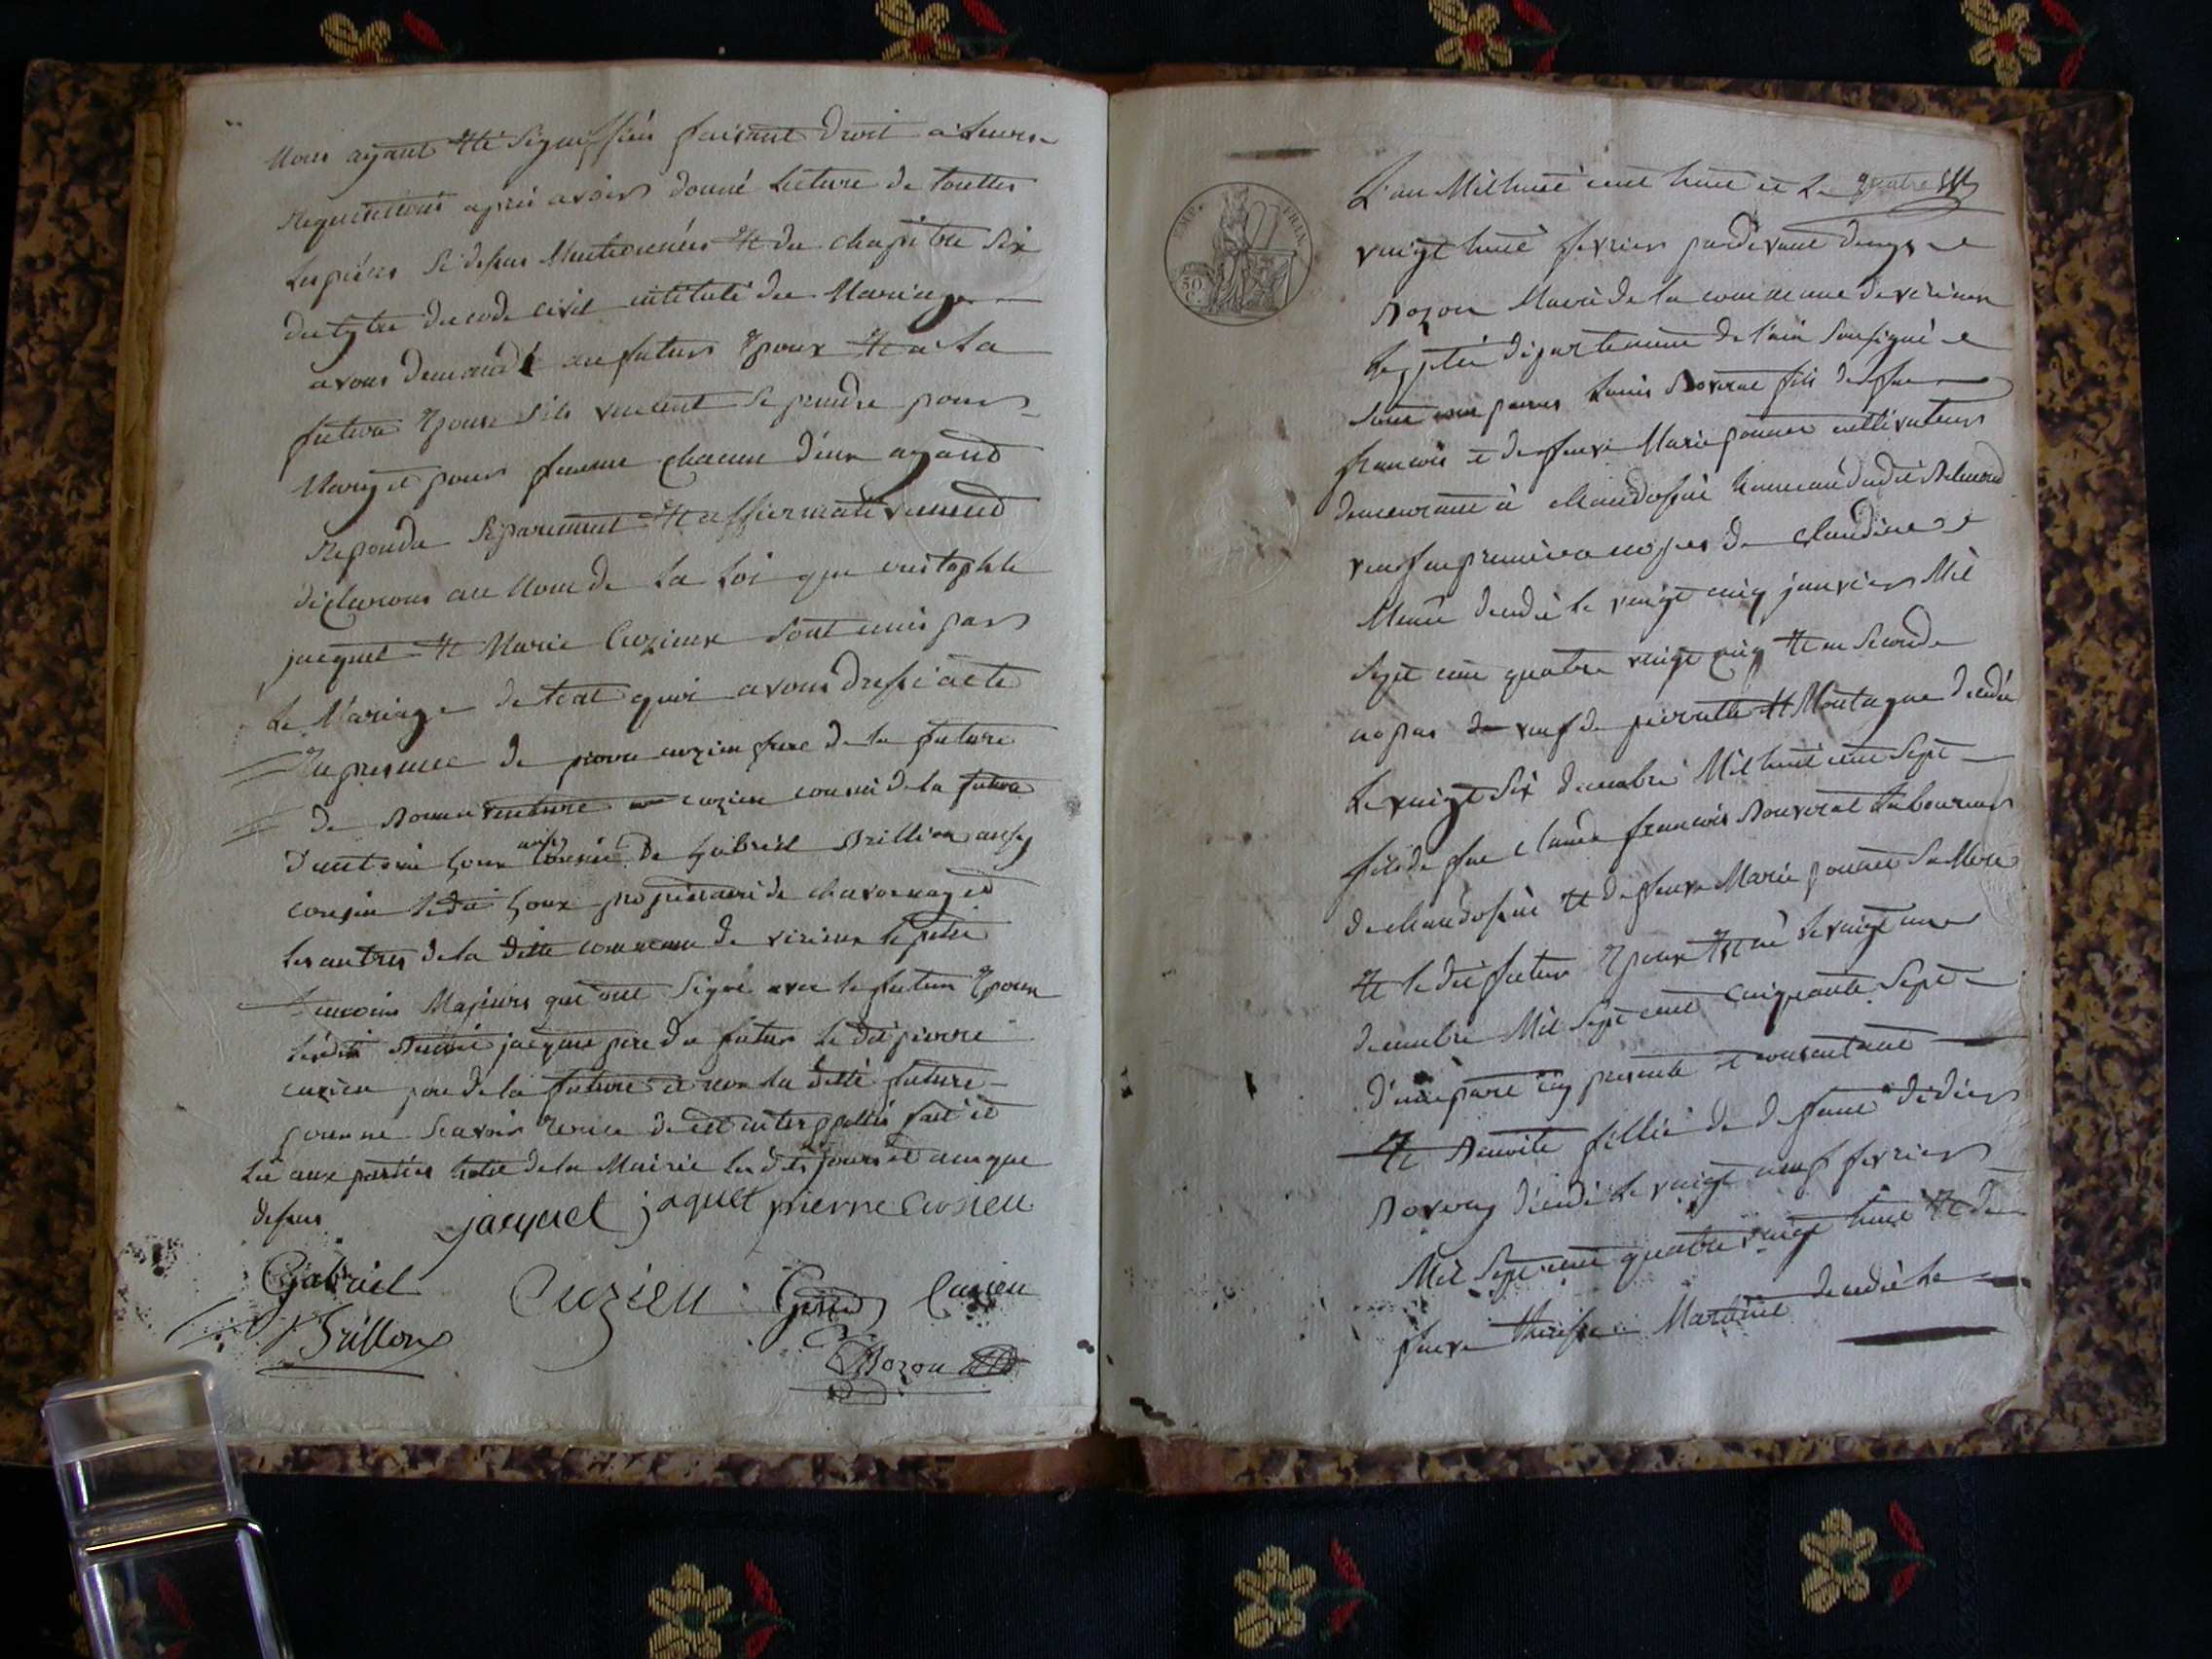 Nous ayant été signiffiés faisant droit a leurs
requisitions aprés avoir donné lecture de touttes
les piéces si dessus Mentionnées et du chapitre six
du tytre du code civil intitulé du Mariage
avons demandé au futur Epoux et a la
future Epouse s'ils veulent se prendre pour
Mary et pour femme chacun d'eux ayand
repondu séparement et affirmativemend
déclarons au Nom de la Loi que cristophle
jacquet et Marie Cuzieux sont unis par
le Mariage de tout quoi avons dressé acte
En presence de pierre cuzieu frere de la future
de Bonnaventure cuzieu cousin de la future
aussy
d'antoine Goux cousin de Gabriel Brillion aussy
cousin ledit Goux propriétaire de chavornay et
les autres de la ditte commune de virieux le petit
temoins Majeurs qui ont signé avec le futur Epoux
jacquet pere du futur le dit pierre
cuzieu pere de la future et non la ditte future
pour ne scavoir Ecrire de ce interppellés fait et
lu aux parties hotel de la Mairie les dits jours et an que
dessus
jacquet jaquet pierre Cuzieu
Gabriel
Cuzieu Goux Cuzieu
Brillion
Bozon
L'an Mil huit cent huit et le quatre
EMP. FRAN.
50 C.
vingt huit fevrier pardevant denys
Bozon Maire de la commune de virieux
le petit département de l'ain soussigné
sont comparus Louis Boverat fils de feu
francois et de feue Marie ponnet cultivateur
demeurant à Chandossin hameau dudit Belmond
veuf en premiere nopces de Claudine
décedée le vingt cinq janvier Mil
sept cent quatre vingt cinq et en seconde
nopces de veuf de pierrette Montagne décedée
le vingt six decembre Mil huit cent sept
fils de feu Claude francois Bouverat Laboureur
de chandossin et de feue Marie ponnet sa Mere
et le dit futur Epoux Est né le vingt un
decembre Mil sept cent cinquante sept
d'une part icy presents et consentant
et Benoite fillie de defunt didier
Bovery décedé le vingt neuf fevrier
Mil sept cent quatre vingt huit et de
feue theresse Martine décedée le